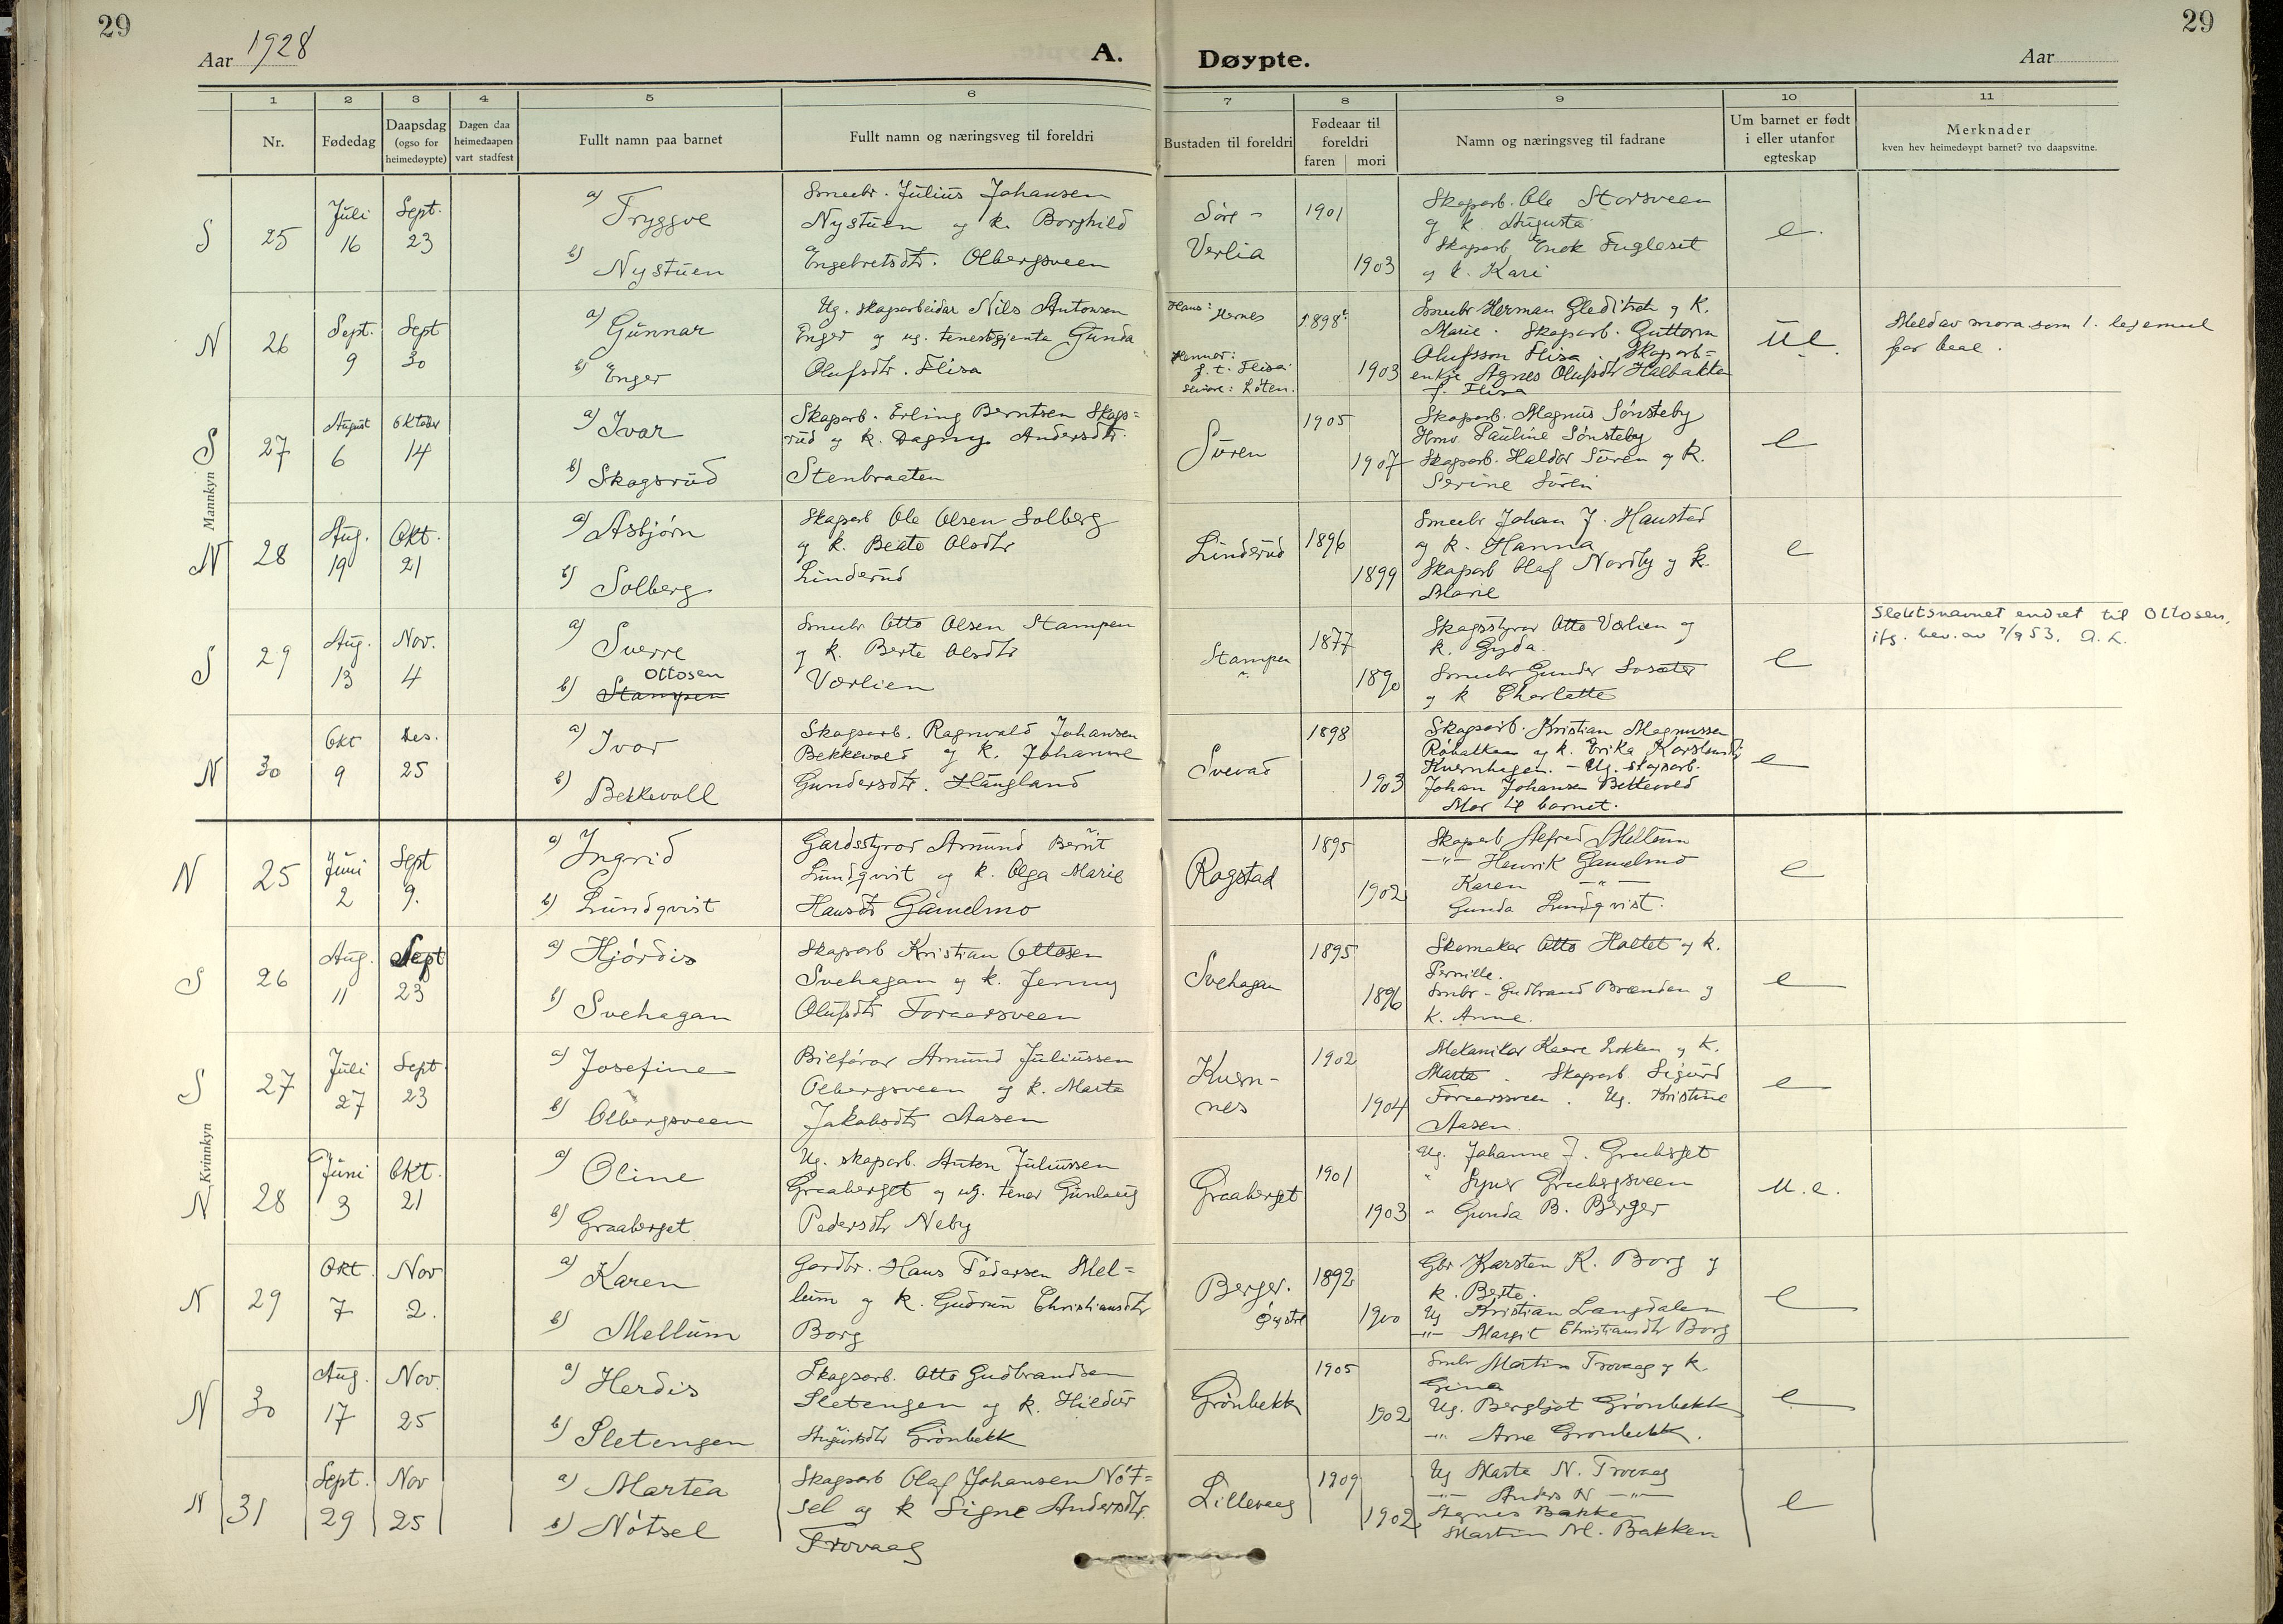 29
29
Aar 1928
A.
Døypte.
Aar
1 2 3 4 5 6 7 8 9 10 11
Nr.
Fødedag
Daapsdag (ogso for heimedøypte)
Dagen daa heimedaapen vart stadfest
Fullt namn paa barnet
Fullt namn og næringsveg til foreldri
Bustaden til foreldri
Fødeaar til foreldri
faren mori
Namn og næringsveg til fadrane
Um barnet er født i eller utanfor egteskap
Merknader
kven hev heimedøypt barnet? tvo daapsvitne.
Mannkyn
S 25
Juli 16
Sept. 23
a) Tryggve
b) Nystuen
Smeebr. Julius Johansen
Nystuen og k. Borghild
Engebretsdtr. Olbergsveen
Søre-
Verlia
1901
1903
Skogarb. Ole Storsveen
og k. Augusta
Skogarb Enok Fugleset
og k. Kari
e.
N 26
Sept. 9
Sept 30
a) Gunnar
b) Enger
Ug. skogarbeidar Nils Antonsen
Enger og ug. tenestgjenta Gunda
Olufsdtr. Flisa
Hans: Hernes
Hennar:
f. t. Flisa
seinre: Løten.
1898
1903
Smeebr Herman Gleditsch og K.
Marie. Skogarb. Guttorm
Olufsson Flisa. Skogarb-
enkje Agnes Olufsdtr Halbakken
f. Flisa
u e.
Meld av mora som 1. leiemaal
for beae.
S 27
August 6
Oktober 14
a) Ivar
b) Skogsrud
Skogarb. Erling Berntsen Skogs=
rud og k. Dagny Andersdtr.
Stenbraaten
Süren
1905
1907
Skogarb. Magnus Sønsteby
Hmv. Pauline Sønsteby
Skogarb. Haldor Süren og k.
Serine Süren
e
N 28
Aug. 19
Okt. 21
a) Asbjørn
b) Solberg
Skogarb Ole Olsen Solberg
og k. Beate Olsdtr
Linderud
Linderud
1896
1899
Smeebr Johan J. Haustad
og k. Hanna
Skogarb Olaf Nordby og k.
Marie
e
S 29
Aug. 13
Nov. 4
a) Sverre
Ottosen
b) Stampen
Smeebr Otto Olsen Stampen
og k. Berte Olsdtr
Værlien
Stampen
1877
1890
Skogstyrar Otto Værlien og
k. Gyda.
Smeebr Gunder Sæter
og k Charlotte
e
Slektsnavnet endret til Ottosen,
ifg. bev. av 7/9 53. A. L.
N 30
Okt 9
Des. 25
a) Ivar
b) Bekkevoll
Skogsarb. Ragnvald Johansen
Bekkevold og k. Johanne
Gundersdtr. Haugland
Svevad
1898
1903
Skogsarb. Kristian Magnussen
Røbakken og k. Erika Karstensdtr
Kvernhagen. - Ug. skogsarb.
Johan Johansen Bekkevold
Mor til barnet.
e
Kvinnkyn
N 25
Juni 2
Sept 9.
a) Ingrid
b) Lundqvist
Gardsstyrar Amund Bernt
Lundqvist og k. Olga Marie
Hansdtr Gamelmo
Rogstad
1895
1902
Skogarb Alfred Mellem
—"— Henrik Gamelmo
Karen —"—
Gunda Lundqvist.
e
S 26
Aug. 11
Sept 23
a) Hjørdis
b) Svehagan
Skogarb Kristian Ottosen
Svehagan og k. Jenny
Olufsdtr Foraarsveen
Svehagan
1895
1896
Skomaker Otto Holtet og k.
Pernille.
Smbr. Gudbrand Brænden og
k. Anne.
e
S 27
Juli 27
Sept 23
a) Josefine
b) Olbergsveen
Bilførar Amund Juliussen
Olbergsveen og k. Marta
Jakobsdtr Aasen
Kvern-
nes
1902
1904
Mekanikar Kaare Lokken og k.
Marta. Skogarb Sigurd
Foraarsveen. Ug. Kristine
Aasen.
e
N 28
Juni 3
Okt. 21
a) Oline
b) Graaberget
Ug. skogarb. Anton Juliussen
Graaberget og ug. tenar Gunlaug
Pedersdtr Neby
Graaberget
1901
1903
Ug. Johanne J. Graaberget
" Syver Graabergsveen
" Gunda B. Berger
u. e.
N 29
Okt. 7
Nov 2.
a) Karen
b) Mellum
Gardbr. Hans Pedersen Mel=
lum og k. Gudrun Christiansdtr
Borg
Berger.
Øystre
1892
1900
Gbr Karsten K. Borg og
k. Berte.
Ug Kristian Langdalen
—"— Margit Christiansdtr Borg
e
N 30
Aug. 17
Nov. 25
a) Herdis
b) Sletengen
Skogsarb. Otto Gudbrandsen
Sletengen og k. Hildur
Augustsdtr Grönbekk
Grönbekk
1905
1902
Smbr Martin Trovaag og k.
Gina
Ug. Bergljot Grönbekk
—"— Arne Grönbekk.
e
N 31
Sept. 29
Nov 25
a) Martea
b) Nötsel
Skogsarb Olaf Johansen Nöt=
sel og k Signe Andersdtr.
Trovaag
Lillevaag
1909
1902
Ug Marta N. Trovaag
—"— Anders N —"—
Agnes Bakken
Martin M. Bakken
e